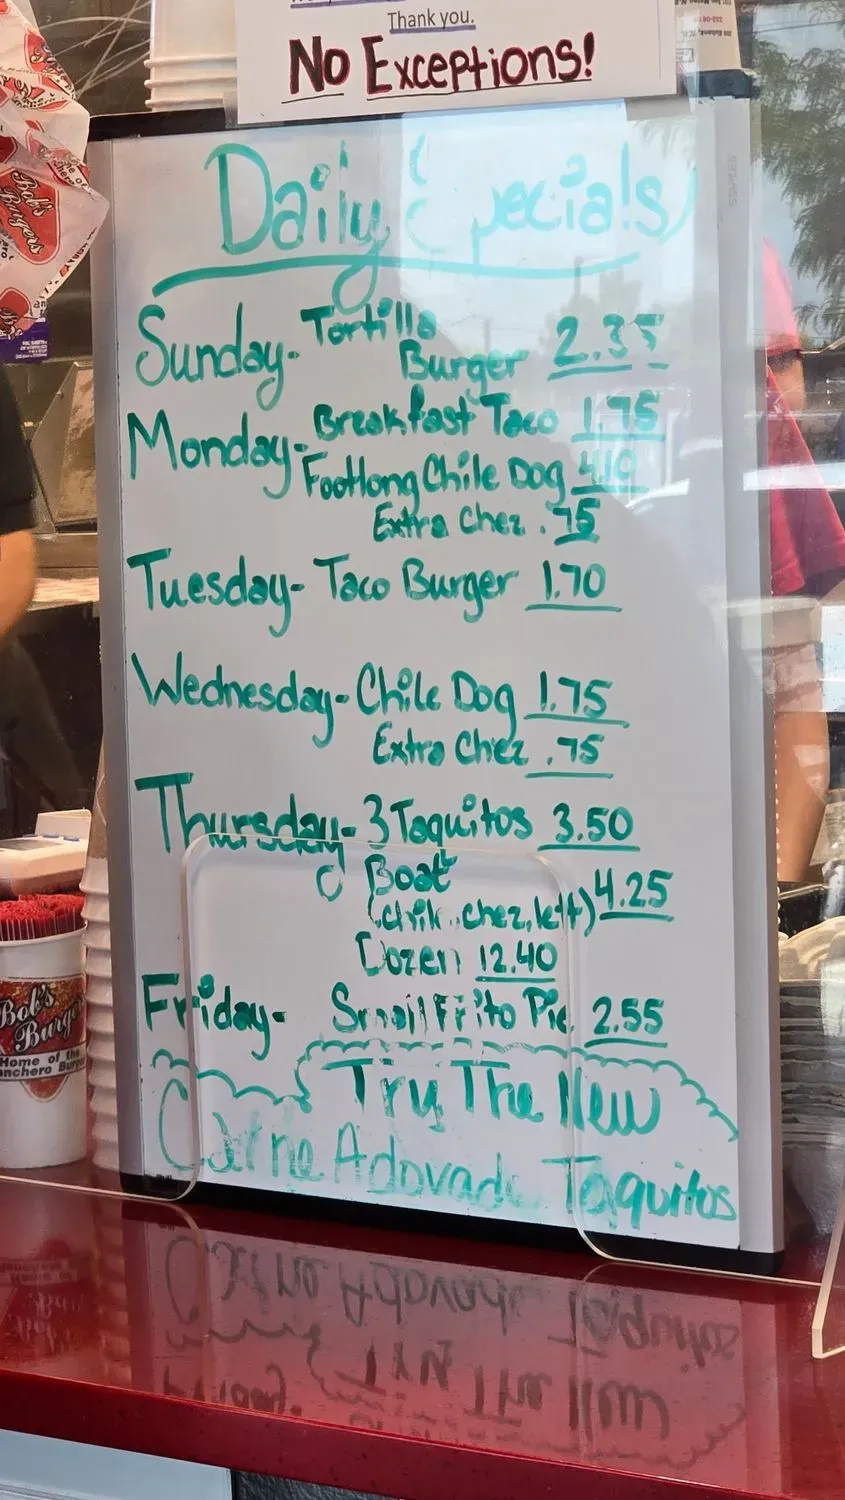 Thank you.
No Exceptions!
Daily Specials
Sunday- Tortilla
Burger 2.35
Monday- Breakfast Taco 1.75
Footlong Chile Dog 4.10
Extra Chez .75
Tuesday- Taco Burger 1.70
Wednesday- Chile Dog 1.75
Extra Chez .75
Thursday- 3 Taquitos 3.50
Boat
(chik., chez, lett) 4.25
Dozen 12.40
Friday- Small Frito Pie 2.55
Try The New
Carne Adovada Taquitos
Bob's
Burgers
Bob's
Burge
Home of the
nchero Burg